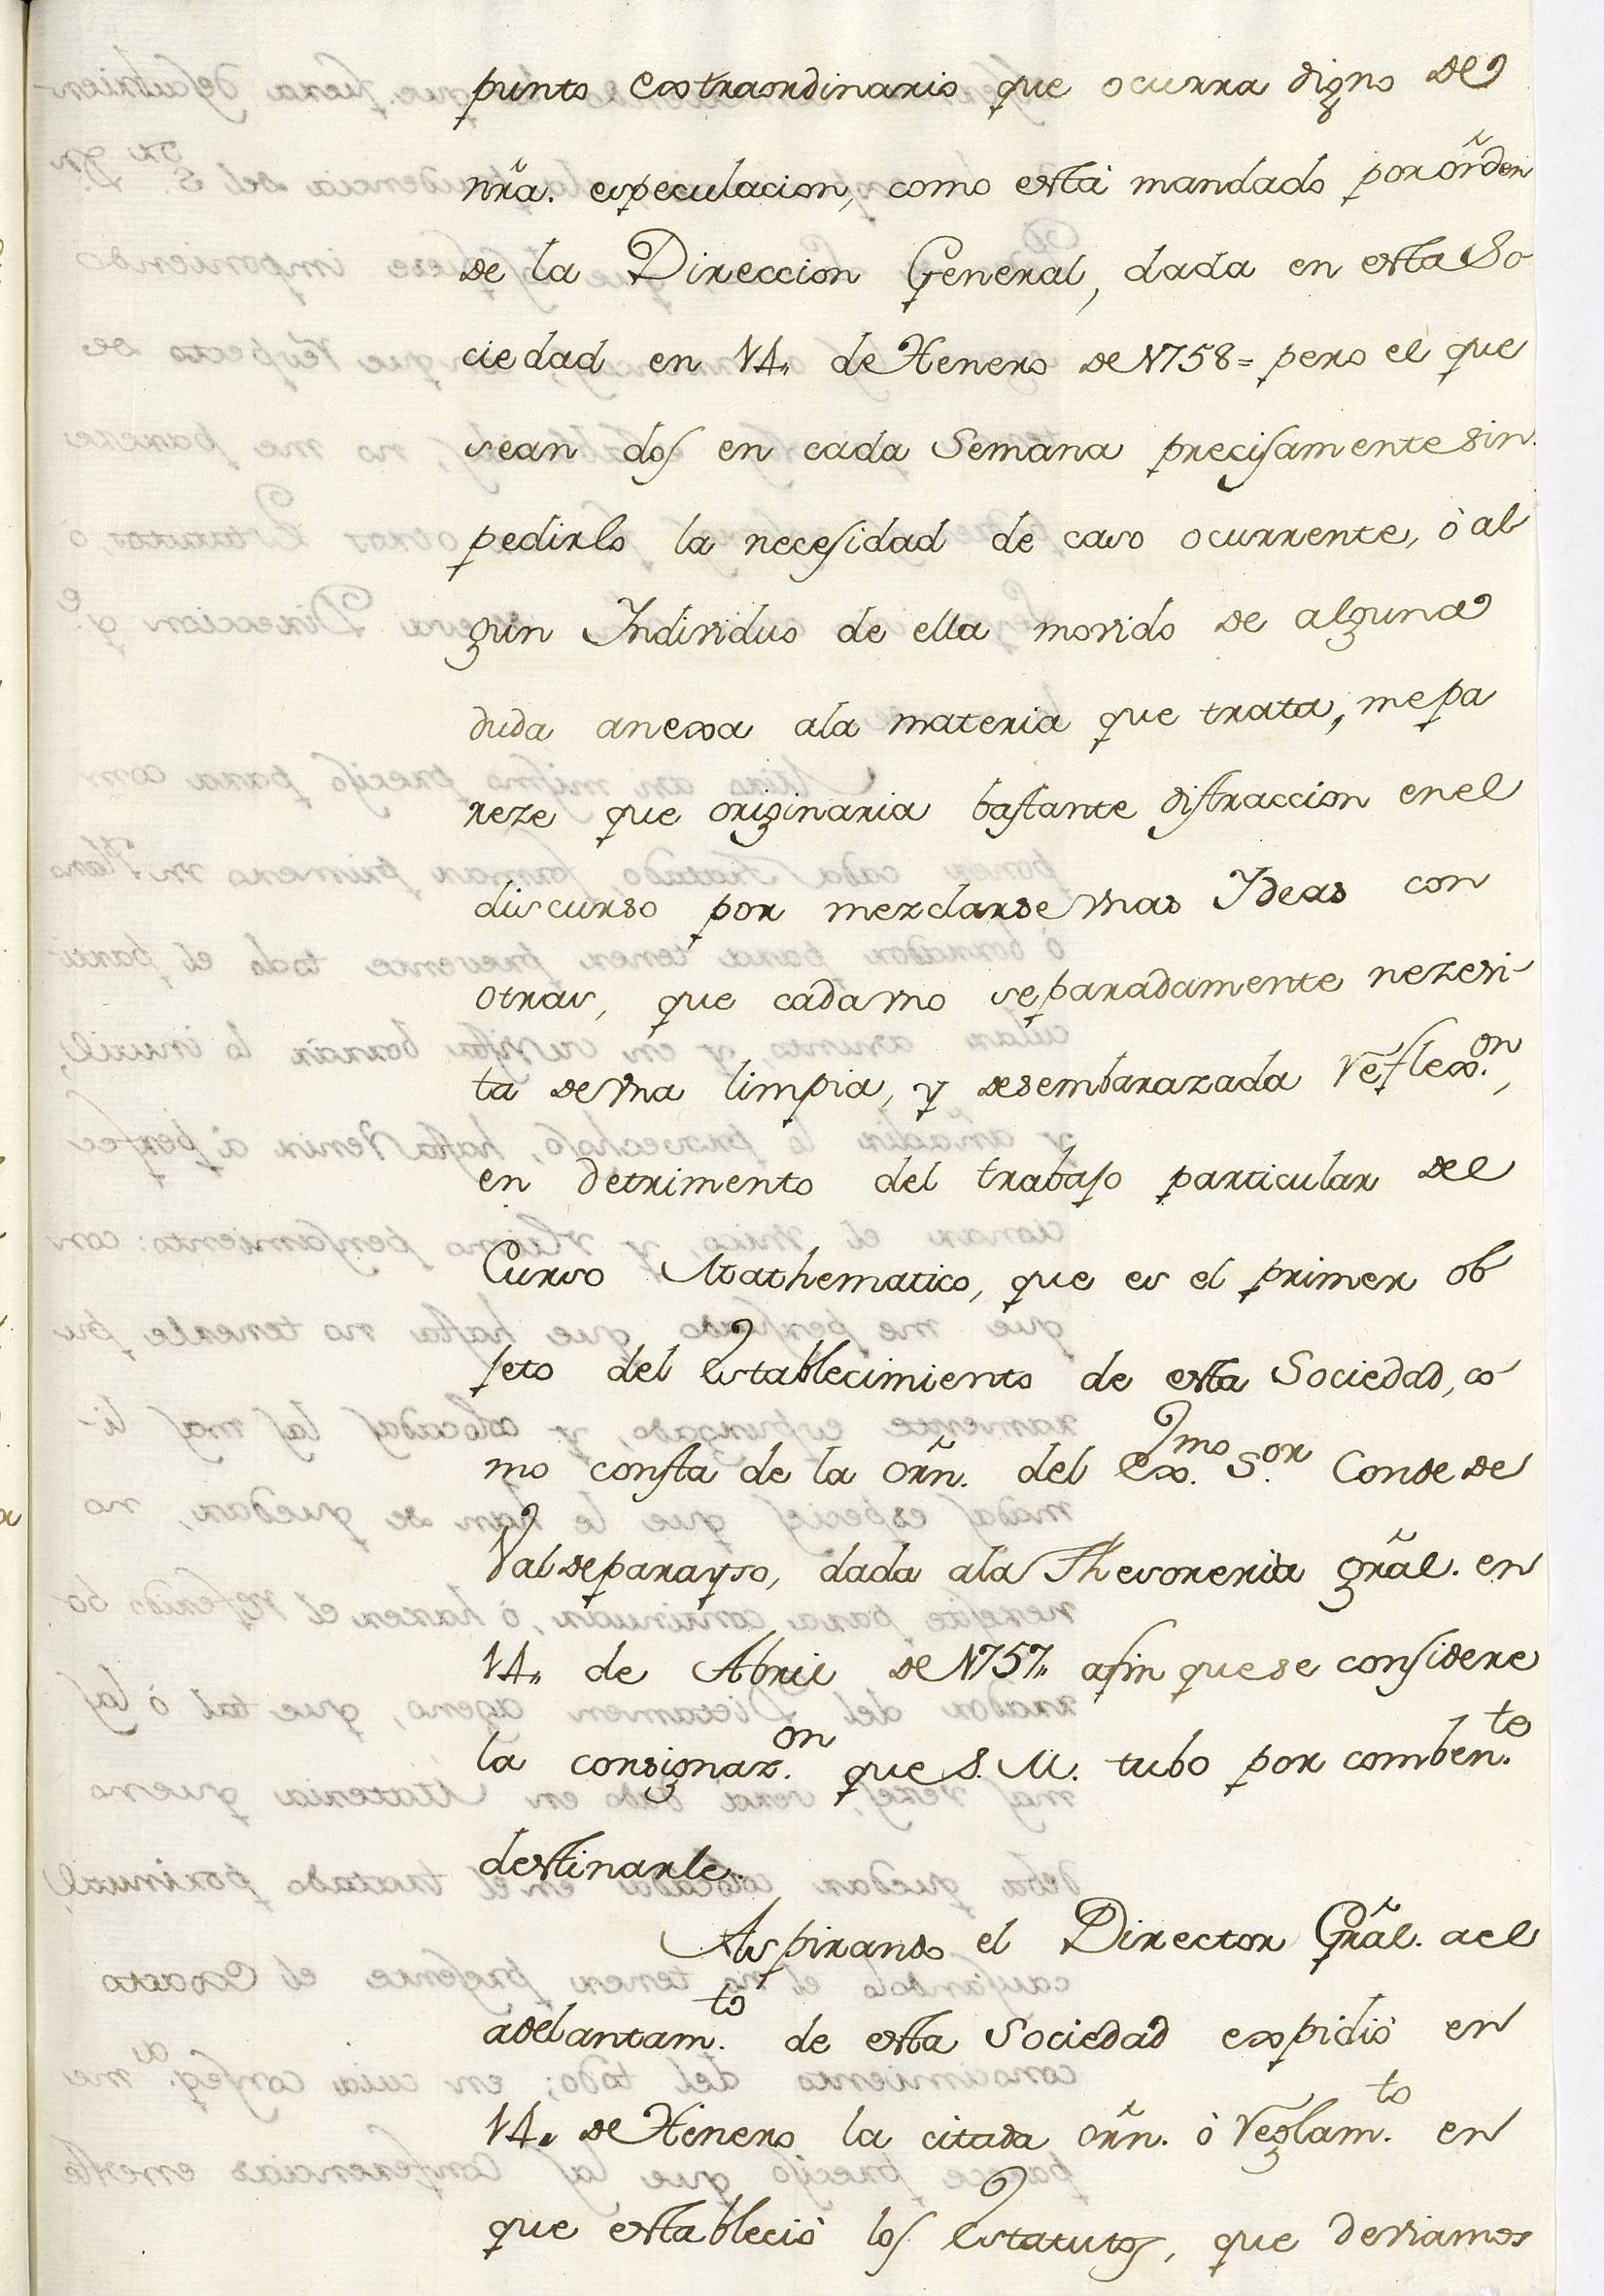 punto extraordinario que ocurra digno de
nr̃a. especulacion, como está mandado por orn̄den
de la Direccion General, dada en esta So
ciedad en 14,, de Henero de 1758= pero el que
sean dos en cada Semana precisamente sin
pedirlo la necesidad de caso ocurrente, ò al
gun Individuo de ella movido de alguna
duda anexa ala materia que trata, me pa
reze que originaria bastante distraccion enel
discurso por mezclarse unas Ydeas con
otras, que cada uno separadamente nezesi-
ta de una limpia, y desembarazada reflex.on,
en detrimento del trabajo particular del
Curso Mathematico, que es el primer ob
jeto del establecimiento de esta Sociedad, co
mo consta de la Orñ. del Ex.mo S.or Conde de
Valdeparayso, dada ala Thesoreria grãl. en
14,, de Abril de 1757,, afin que se considere
la consignaz.on que S. M. tubo por comben.te
destinarle.
Aspirando el Director Grãl. ael
adelantam.to de esta Sociedad expidió en
14,, de Henero la citada orñ. ò reglam.to en
que estableció los estatutos, que deviamos